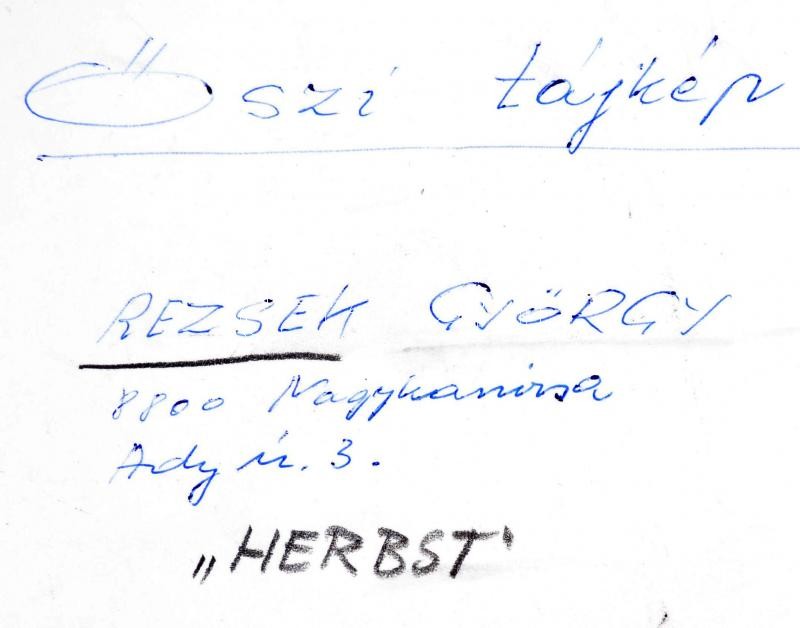 Őszi tájkép
REZSEK GYÖRGY
8800 Nagykanizsa
Ady u. 3.
„HERBST'